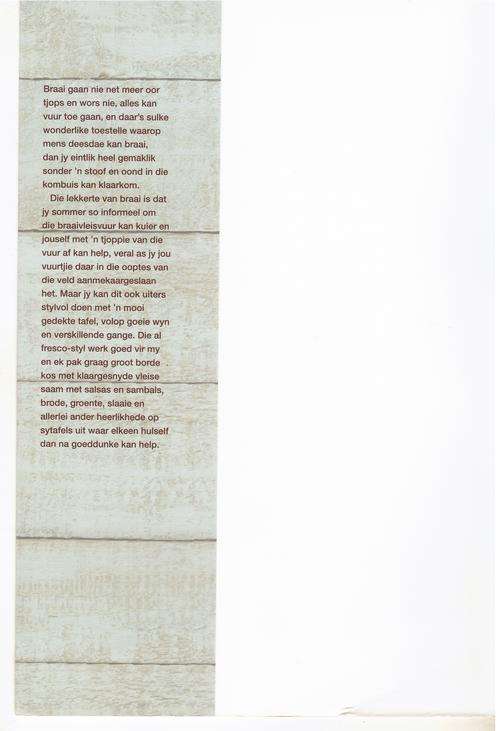 Braai gaan nie net meer oor
tjops en wors nie, alles kan
vuur toe gaan, en daar's sulke
wonderlike toestelle waarop
mens deesdae kan braai,
dan jy eintlik heel gemaklik
sonder 'n stoof en oond in die
kombuis kan klaarkom.
Die lekkerte van braai is dat
jy sommer so informeel om
die braaivleisvuur kan kuier en
jouself met 'n tjoppie van die
vuur af kan help, veral as jy jou
vuurtjie daar in die ooptes van
die veld aanmekaargeslaan
het. Maar jy kan dit ook uiters
stylvol doen met 'n mooi
gedekte tafel, volop goeie wyn
en verskillende gange. Die al
fresco-styl werk goed vir my
en ek pak graag groot borde
kos met klaargesnyde vleise
saam met salsas en sambals,
brode, groente, slaaie en
allerlei ander heerlikhede op
sytafels uit waar elkeen hulself
dan na goeddunke kan help.